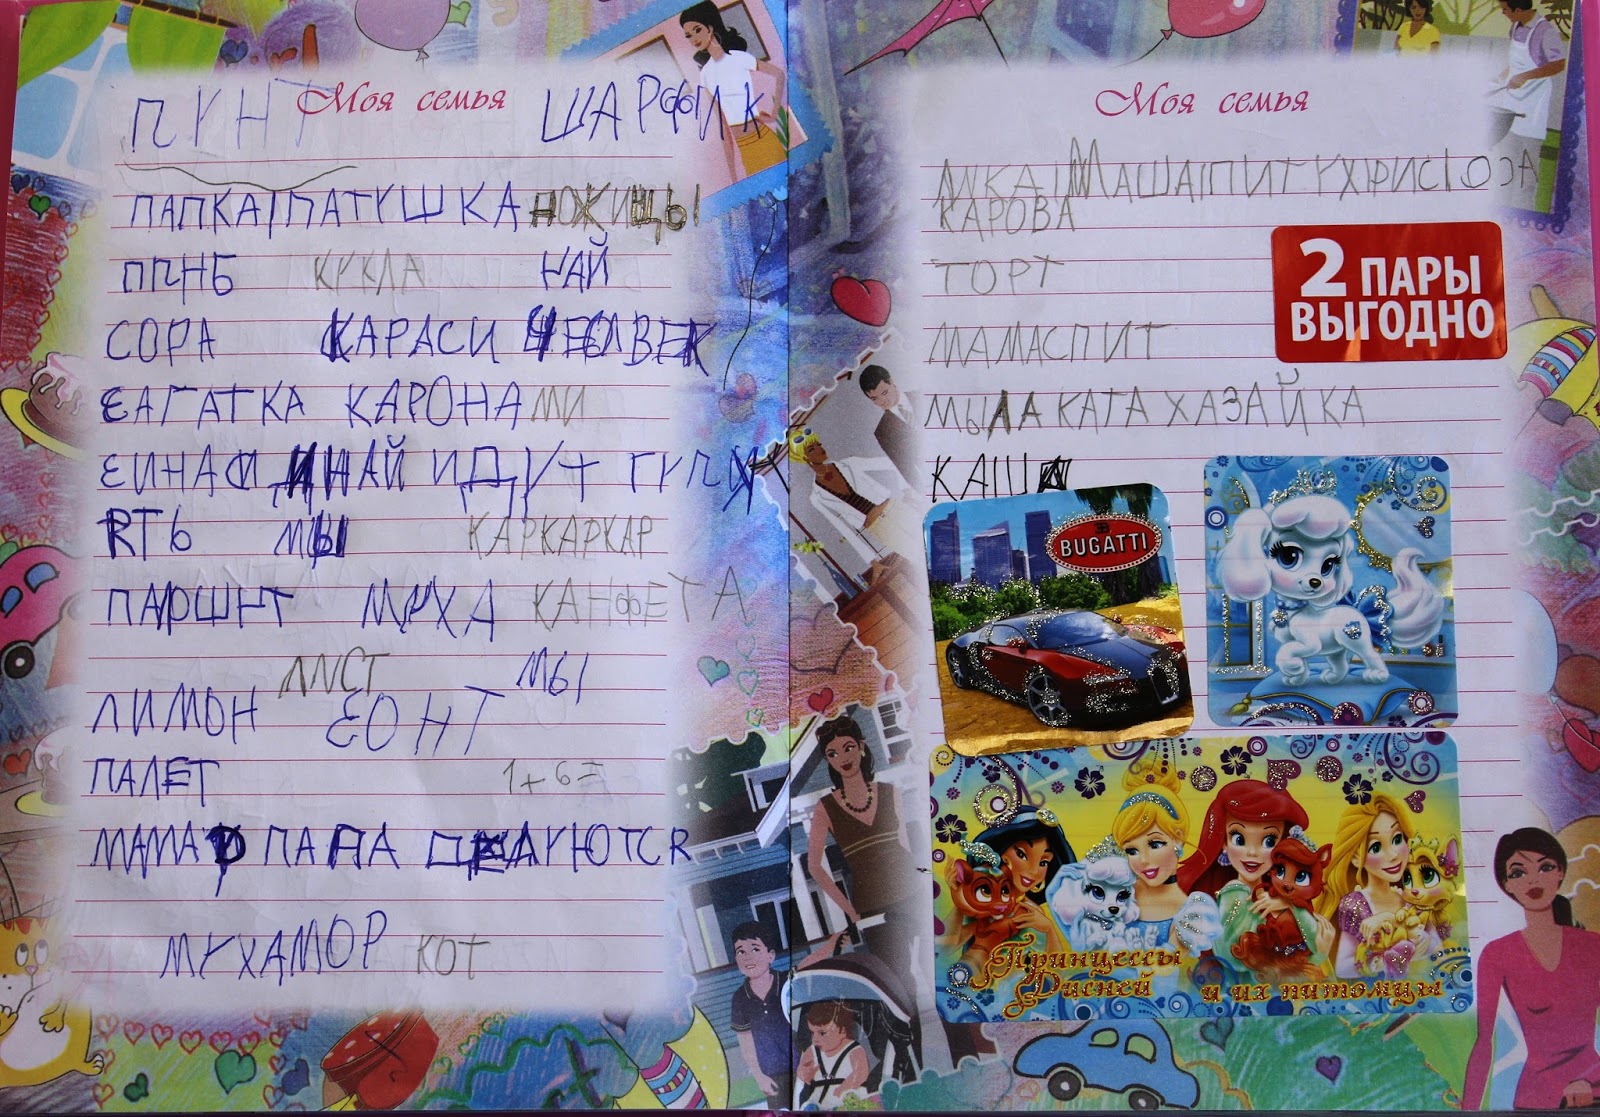 Моя семья
ПУНТ ШАРФИК
ПАПКА ПАТУШКА НОЖИЦЫ
КУКЛА НАЙ
СОРА КАРАСИ ЧЕОЛВЕК
ЕАГАТКА КАРОНА МИ
ЕИНАСИ ИНАЙ ИДУТ ГУЛ
ЯТЬ МЫ КАРКАРКАР
ПАРШНТ МУХА КАНФЕТА
ЛИСТ МЫ
ЛИМОН ЕОНТ
ПАЛЕТ 1+6=
МАМА ПАПА ЦЕЛУЮТСЯ
МУХАМОР КОТ
Моя семья
МАША ПИТУХ
КАРОВА
ТОРТ
МАМАСПИТ
МЫЛА КАТА ХАЗАЙКА
КАША
2 ПАРЫ
ВЫГОДНО
BUGATTI
Принцессы
Дисней и их питомцы